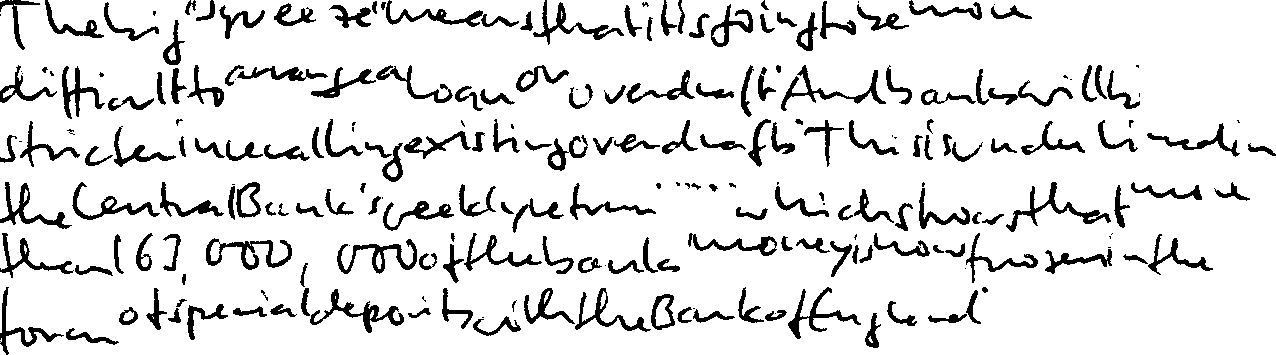 The big "squeeze" means that it is going to be more
difficult to arrange a loan or overdraft. And banks will be
stricter in recalling existing overdrafts. This is underlined in
the Central Bank's weekly return ..... which shows that more
than 163, 000, 000 of the banks' money is now frozen in the
form of special deposits with the Bank of England.